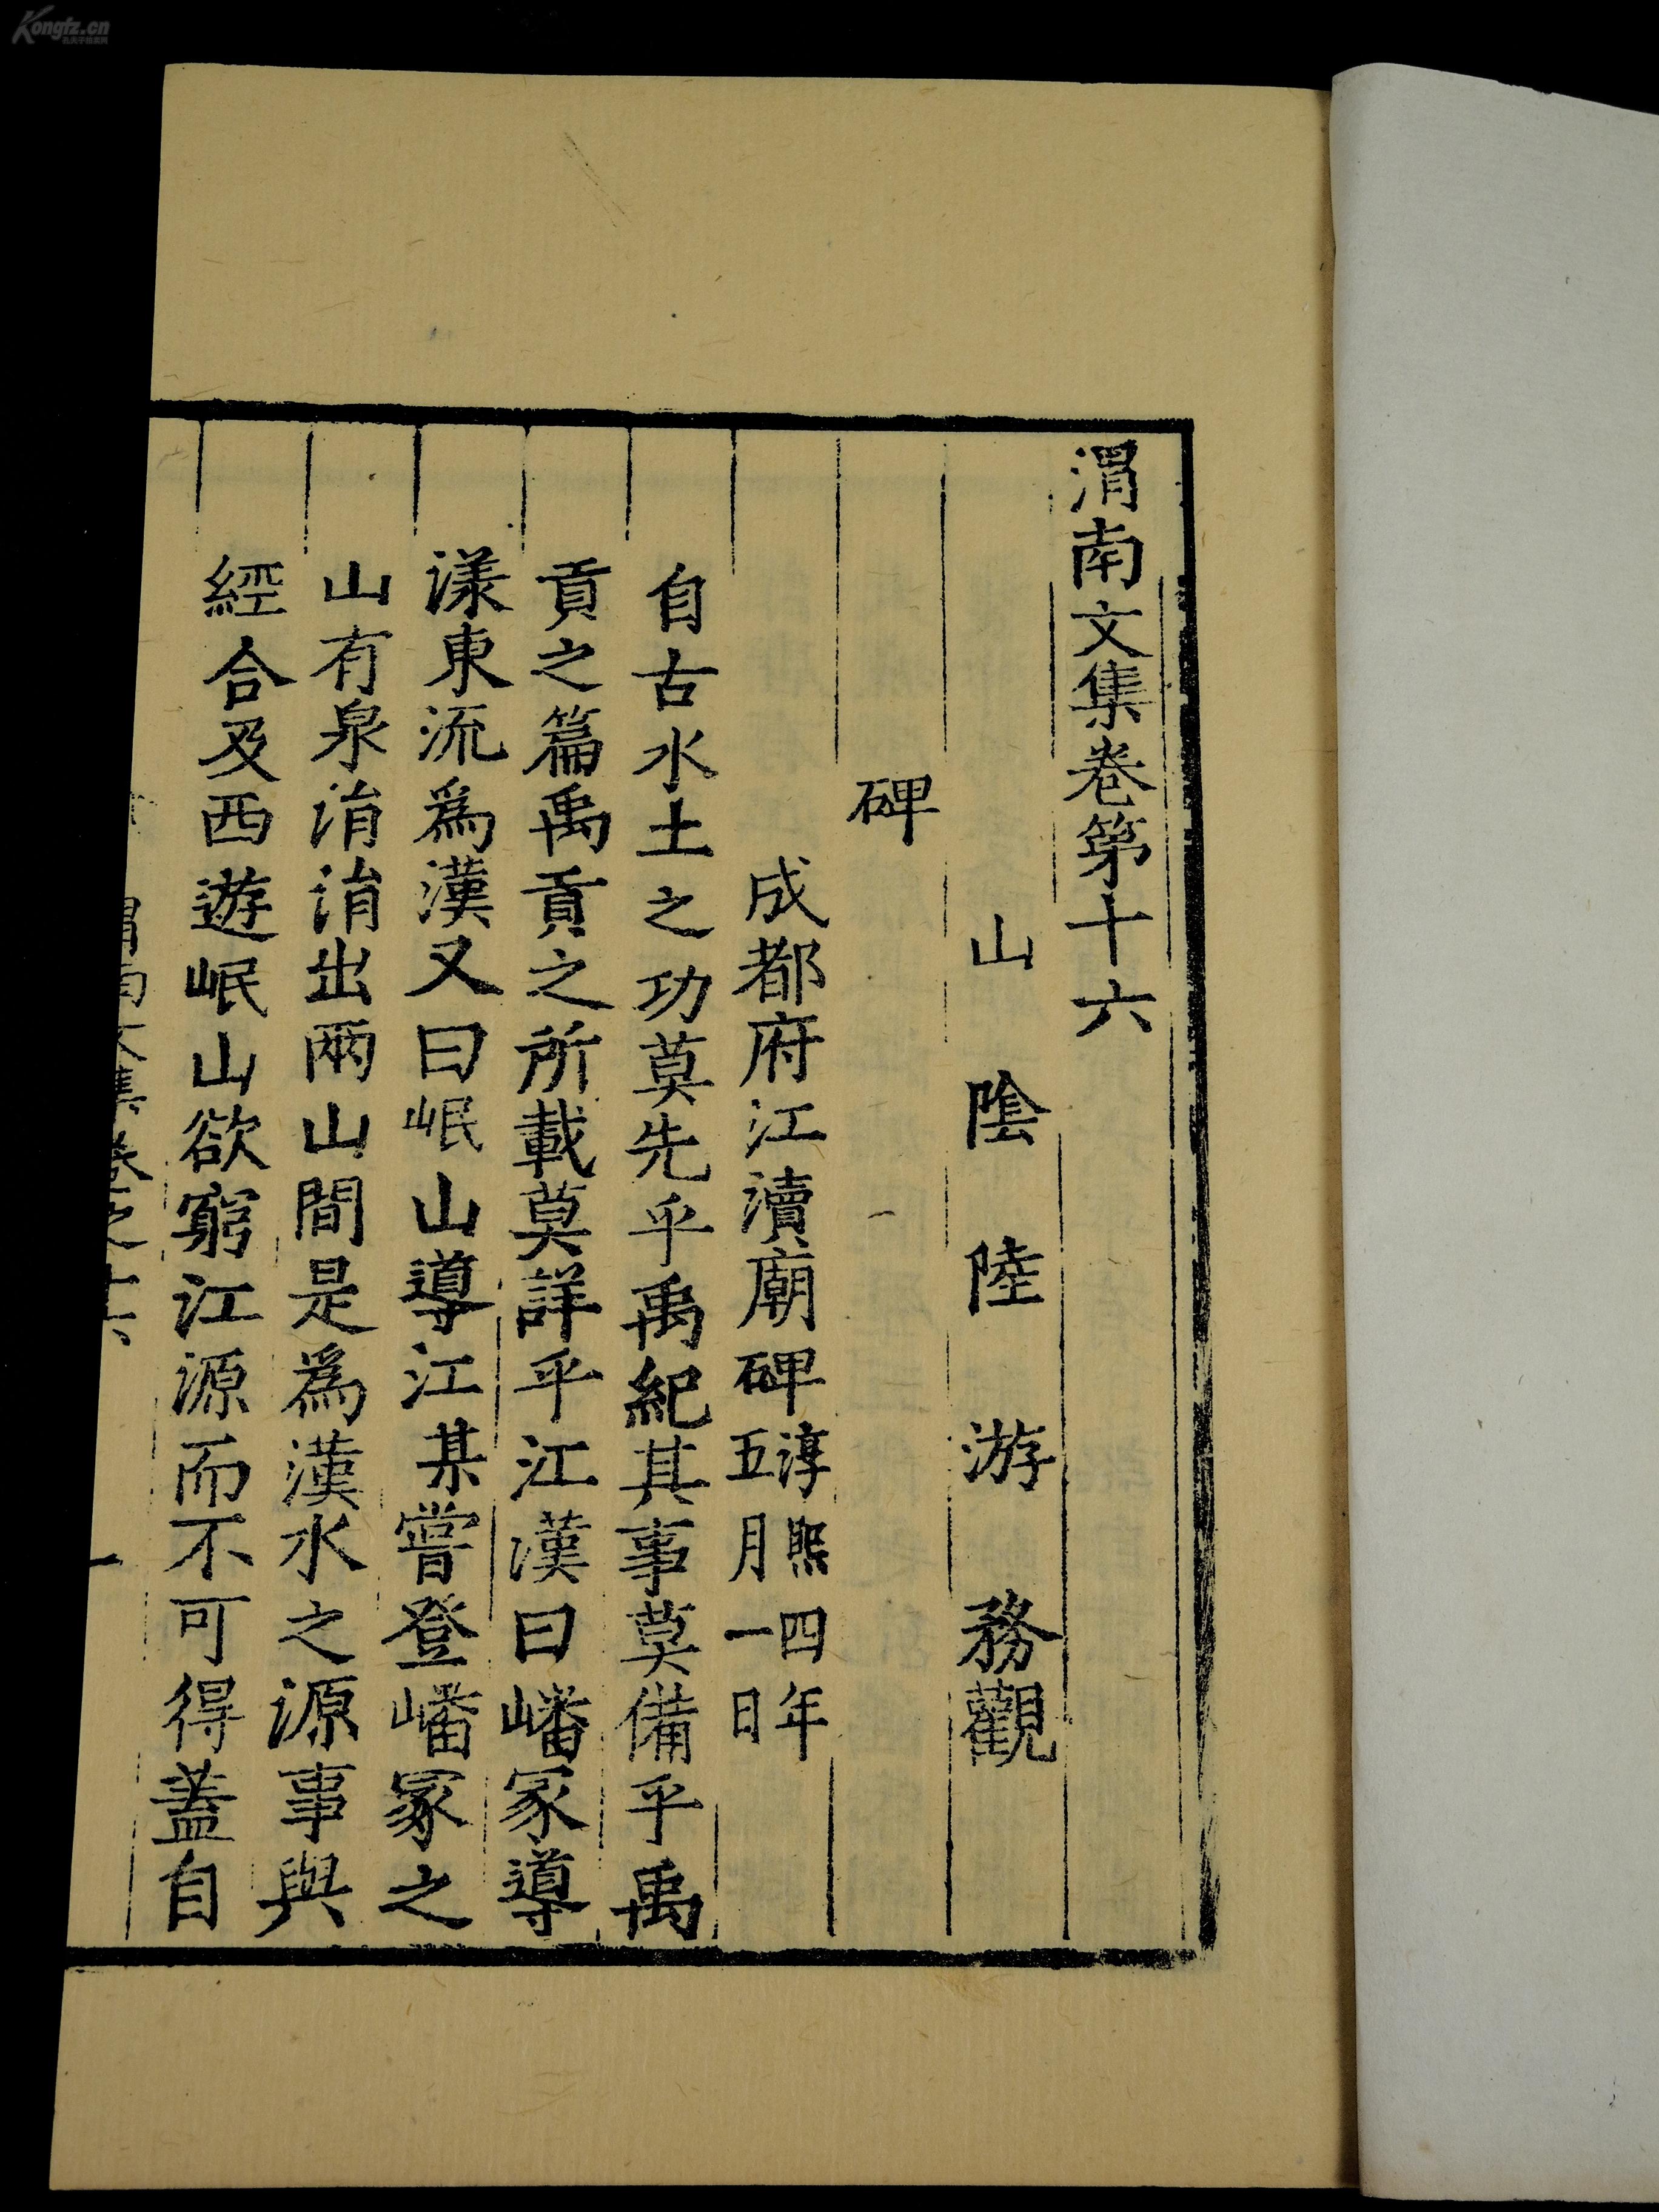 渭南文集卷第十六
山陰陸游務觀
碑
成都府江瀆廟碑淳熙四年
五月一日
自古水土之功莫先乎禹紀其事莫備乎禹
貢之篇禹貢之所載莫詳乎江漢曰嶓冢導
漾東流爲漢又曰岷山導江某嘗登嶓冢之
山有泉涓涓出兩山間是爲漢水之源事與
經合及西遊岷山欲窮江源而不可得蓋自
渭南文集卷之十六
一
Kongfz.cn